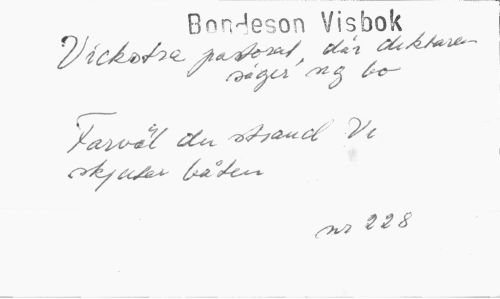 Bondeson Visbok
Vickstra pastorat, där diktaren
säger ng bo
Farväl du strand Vi
skjuter båten
nr 228